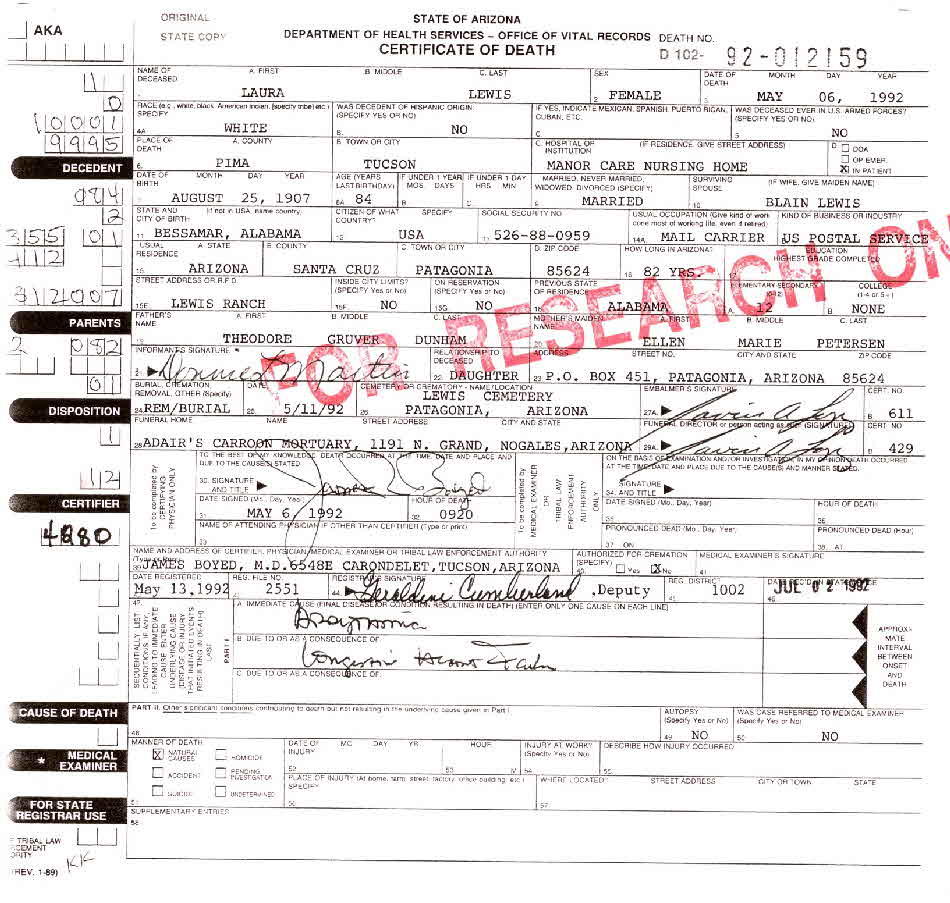 ORIGINAL
STATE COPY
AKA
STATE OF ARIZONA
DEPARTMENT OF HEALTH SERVICES – OFFICE OF VITAL RECORDS
CERTIFICATE OF DEATH
DEATH NO.
D 102- 92-012159
NAME OF DECEASED A. FIRST B. MIDDLE C. LAST SEX DATE OF DEATH MONTH DAY YEAR
1. LAURA LEWIS 2. FEMALE 3. MAY 06, 1992
RACE (e.g., white, black, American Indian, (specify tribe) etc.) SPECIFY WAS DECEDENT OF HISPANIC ORIGIN (SPECIFY YES OR NO) IF YES, INDICATE MEXICAN, SPANISH, PUERTO RICAN, CUBAN, ETC. WAS DECEASED EVER IN U.S. ARMED FORCES? (SPECIFY YES OR NO)
4A WHITE B. NO C. 5. NO
PLACE OF DEATH A. COUNTY B. TOWN OR CITY C. HOSPITAL OR INSTITUTION (IF RESIDENCE, GIVE STREET ADDRESS) D. DOA
OP EMER.
6. PIMA TUCSON MANOR CARE NURSING HOME X IN PATIENT
DECEDENT
DATE OF BIRTH MONTH DAY YEAR AGE (YEARS LAST BIRTHDAY) IF UNDER 1 YEAR MOS. DAYS IF UNDER 1 DAY HRS. MIN MARRIED, NEVER MARRIED, WIDOWED, DIVORCED (SPECIFY) SURVIVING SPOUSE (IF WIFE, GIVE MAIDEN NAME)
7. AUGUST 25, 1907 8A 84 B. C. 9. MARRIED 10. BLAIN LEWIS
STATE AND CITY OF BIRTH (If not in USA, name country) CITIZEN OF WHAT COUNTRY? SPECIFY SOCIAL SECURITY NO USUAL OCCUPATION (Give kind of work done most of working life, even if retired) KIND OF BUSINESS OR INDUSTRY
11. BESSAMAR, ALABAMA 12. USA 13. 526-88-0959 14A MAIL CARRIER B. US POSTAL SERVICE
USUAL RESIDENCE A. STATE B. COUNTY C. TOWN OR CITY D. ZIP CODE HOW LONG IN ARIZONA? EDUCATION HIGHEST GRADE COMPLETED
15. ARIZONA SANTA CRUZ PATAGONIA 85624 16. 82 YRS. 17.
STREET ADDRESS OR R.F.D. INSIDE CITY LIMITS? (Specify Yes or No) ON RESERVATION (SPECIFY Yes or No) PREVIOUS STATE OF RESIDENCE ELEMENTARY-SECONDARY (0-12) COLLEGE (1-4 or 5+)
15E. LEWIS RANCH 15F. NO 15G. NO 18. ALABAMA A. 12 B. NONE
PARENTS
FATHER'S NAME A. FIRST B. MIDDLE C. LAST MOTHER'S MAIDEN NAME A. FIRST B. MIDDLE C. LAST
19. THEODORE GRUVER DUNHAM 20. ELLEN MARIE PETERSEN
INFORMANT'S SIGNATURE RELATIONSHIP TO DECEASED ADDRESS STREET NO. CITY AND STATE ZIP CODE
21. 22. DAUGHTER 23. P.O. BOX 451, PATAGONIA, ARIZONA 85624
DISPOSITION
BURIAL, CREMATION, REMOVAL, OTHER (Specify) DATE CEMETERY OR CREMATORY - NAME/LOCATION EMBALMER'S SIGNATURE CERT. NO.
LEWIS CEMETERY
24. REM/BURIAL 25. 5/11/92 26. PATAGONIA, ARIZONA 27A. B. 611
FUNERAL HOME NAME STREET ADDRESS CITY AND STATE FUNERAL DIRECTOR or person acting as such (SIGNATURE) CERT NO
28. ADAIR'S CARROON MORTUARY, 1191 N. GRAND, NOGALES, ARIZONA 29A. B. 429
FOR RESEARCH ON
CERTIFIER
To be completed by CERTIFYING PHYSICIAN ONLY
TO THE BEST OF MY KNOWLEDGE, DEATH OCCURRED AT THE TIME, DATE AND PLACE AND DUE TO THE CAUSE(S) STATED
30. SIGNATURE AND TITLE
DATE SIGNED (Mo., Day, Year) HOUR OF DEATH
31. MAY 6, 1992 32. 0920
NAME OF ATTENDING PHYSICIAN IF OTHER THAN CERTIFIER (Type or print)
33.
To be completed by MEDICAL EXAMINER OR TRIBAL LAW ENFORCEMENT AUTHORITY ONLY
ON THE BASIS OF EXAMINATION AND/OR INVESTIGATION, IN MY OPINION DEATH OCCURRED AT THE TIME, DATE AND PLACE DUE TO THE CAUSE(S) AND MANNER STATED.
34. SIGNATURE AND TITLE
DATE SIGNED (Mo., Day, Year) HOUR OF DEATH
35. 36.
PRONOUNCED DEAD (Mo., Day, Year) PRONOUNCED DEAD (Hour)
37. ON 38. AT
NAME AND ADDRESS OF CERTIFIER, PHYSICIAN, MEDICAL EXAMINER OR TRIBAL LAW ENFORCEMENT AUTHORITY (Type or Print) AUTHORIZED FOR CREMATION (SPECIFY) MEDICAL EXAMINER'S SIGNATURE
39. JAMES BOYED, M.D. 6548E CARONDELET, TUCSON, ARIZONA 40. Yes X No 41.
DATE REGISTERED REG. FILE NO. REGISTRAR'S SIGNATURE REG. DISTRICT DATE REC'D IN STATE OFFICE
42. May 13.1992 43. 2551 44. Geraldine Cumberland, Deputy 45. 1002 46. JUL 02 1992
CAUSE OF DEATH
47. SEQUENTIALLY LIST CONDITIONS, IF ANY, LEADING TO IMMEDIATE CAUSE. ENTER UNDERLYING CAUSE (DISEASE OR INJURY THAT INITIATED EVENTS RESULTING IN DEATH) LAST
PART I
A. IMMEDIATE CAUSE (FINAL DISEASE OR CONDITION RESULTING IN DEATH) (ENTER ONLY ONE CAUSE ON EACH LINE)
B. DUE TO OR AS A CONSEQUENCE OF:
Congestive Heart Failure
C. DUE TO OR AS A CONSEQUENCE OF:
APPROXIMATE INTERVAL BETWEEN ONSET AND DEATH
PART II. Other significant conditions contributing to death but not resulting in the underlying cause given in Part I AUTOPSY (Specify Yes or No) WAS CASE REFERRED TO MEDICAL EXAMINER (Specify Yes or No)
48. 49. NO 50. NO
* MEDICAL EXAMINER
MANNER OF DEATH
X NATURAL CAUSES HOMICIDE
ACCIDENT PENDING INVESTIGATION
SUICIDE UNDETERMINED
51.
DATE OF INJURY MO DAY YR HOUR INJURY AT WORK? (Specify Yes or No) DESCRIBE HOW INJURY OCCURRED
52. 53. M 54. 55.
PLACE OF INJURY (At home, farm, street, factory, office building, etc.) SPECIFY WHERE LOCATED? STREET ADDRESS CITY OR TOWN STATE
56. 57.
FOR STATE REGISTRAR USE
SUPPLEMENTARY ENTRIES
58.
TRIBAL LAW
(REV. 1-89) KK
1
0
10001
9995
984
2
355 01
312007
2 082
01
1
12
4280